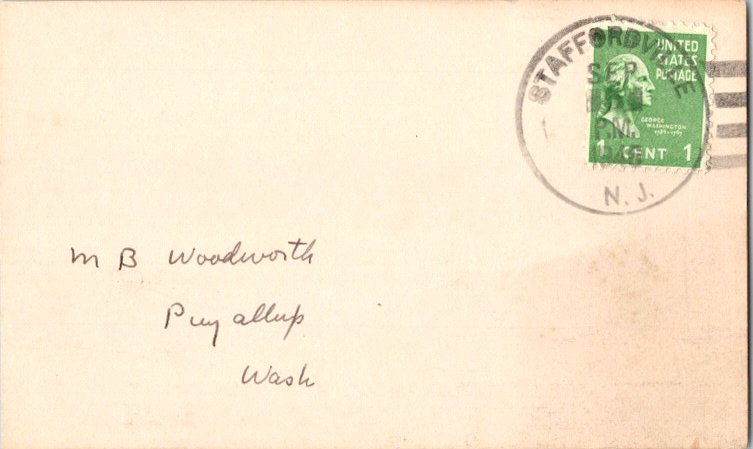 STAFFORDVILLE
SEP
P.M.
N. J.
UNITED
STATES
POSTAGE
GEORGE
WASHINGTON
1789-1797
1 CENT 1
M B Woodworth
Puyallup
Wash